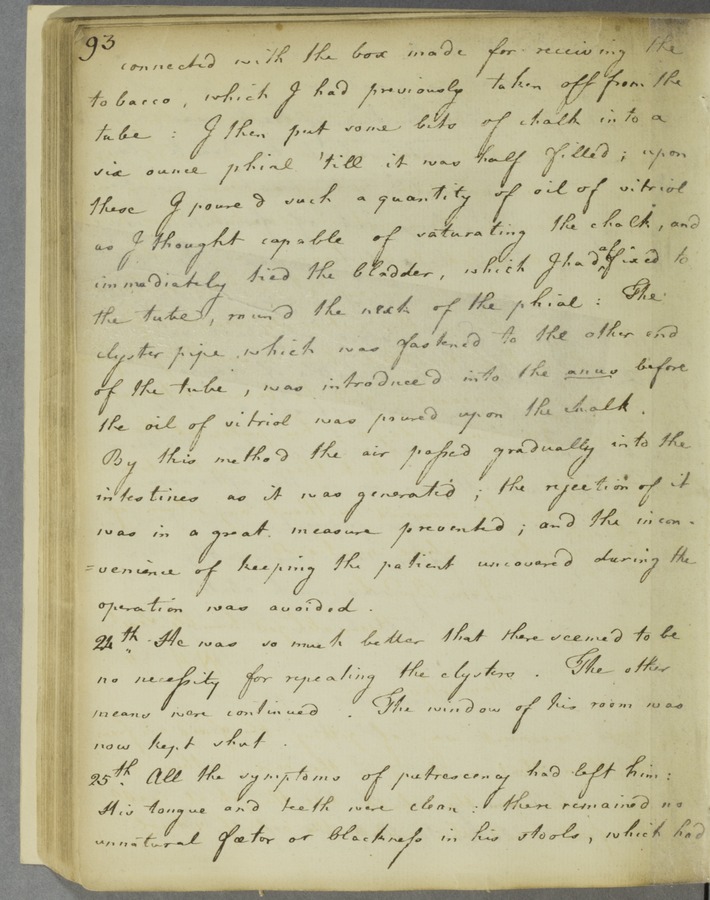 93
connected with the box made for receiving the
tobacco, which I had previously taken off from the
tube : I then put some bits of chalk into a
six ounce phial 'till it was half filled ; upon
these I poured such a quantity of oil of vitriol
as I thought capable of saturating the chalk, and
immediately tied the bladder, which I had affixed to
the tube, round the neck of the phial : The
clyster pipe which was fastened to the other end
of the tube, was introduced into the anus before
the oil of vitriol was poured upon the Chalk.
By this method the air passed gradually into the
intestines as it was generated ; the rejection of it
was in a great measure prevented ; and the incon-
=venience of keeping the patient uncovered during the
operation was avoided.
24th. He was so much better that there seemed to be
no necessity for repeating the clysters. The other
means were continued. The window of his room was
now kept shut.
25th. All the symptoms of putrescency had left him :
His tongue and teeth were clean : there remained no
unnatural fœtor or blackness in his stools, which had